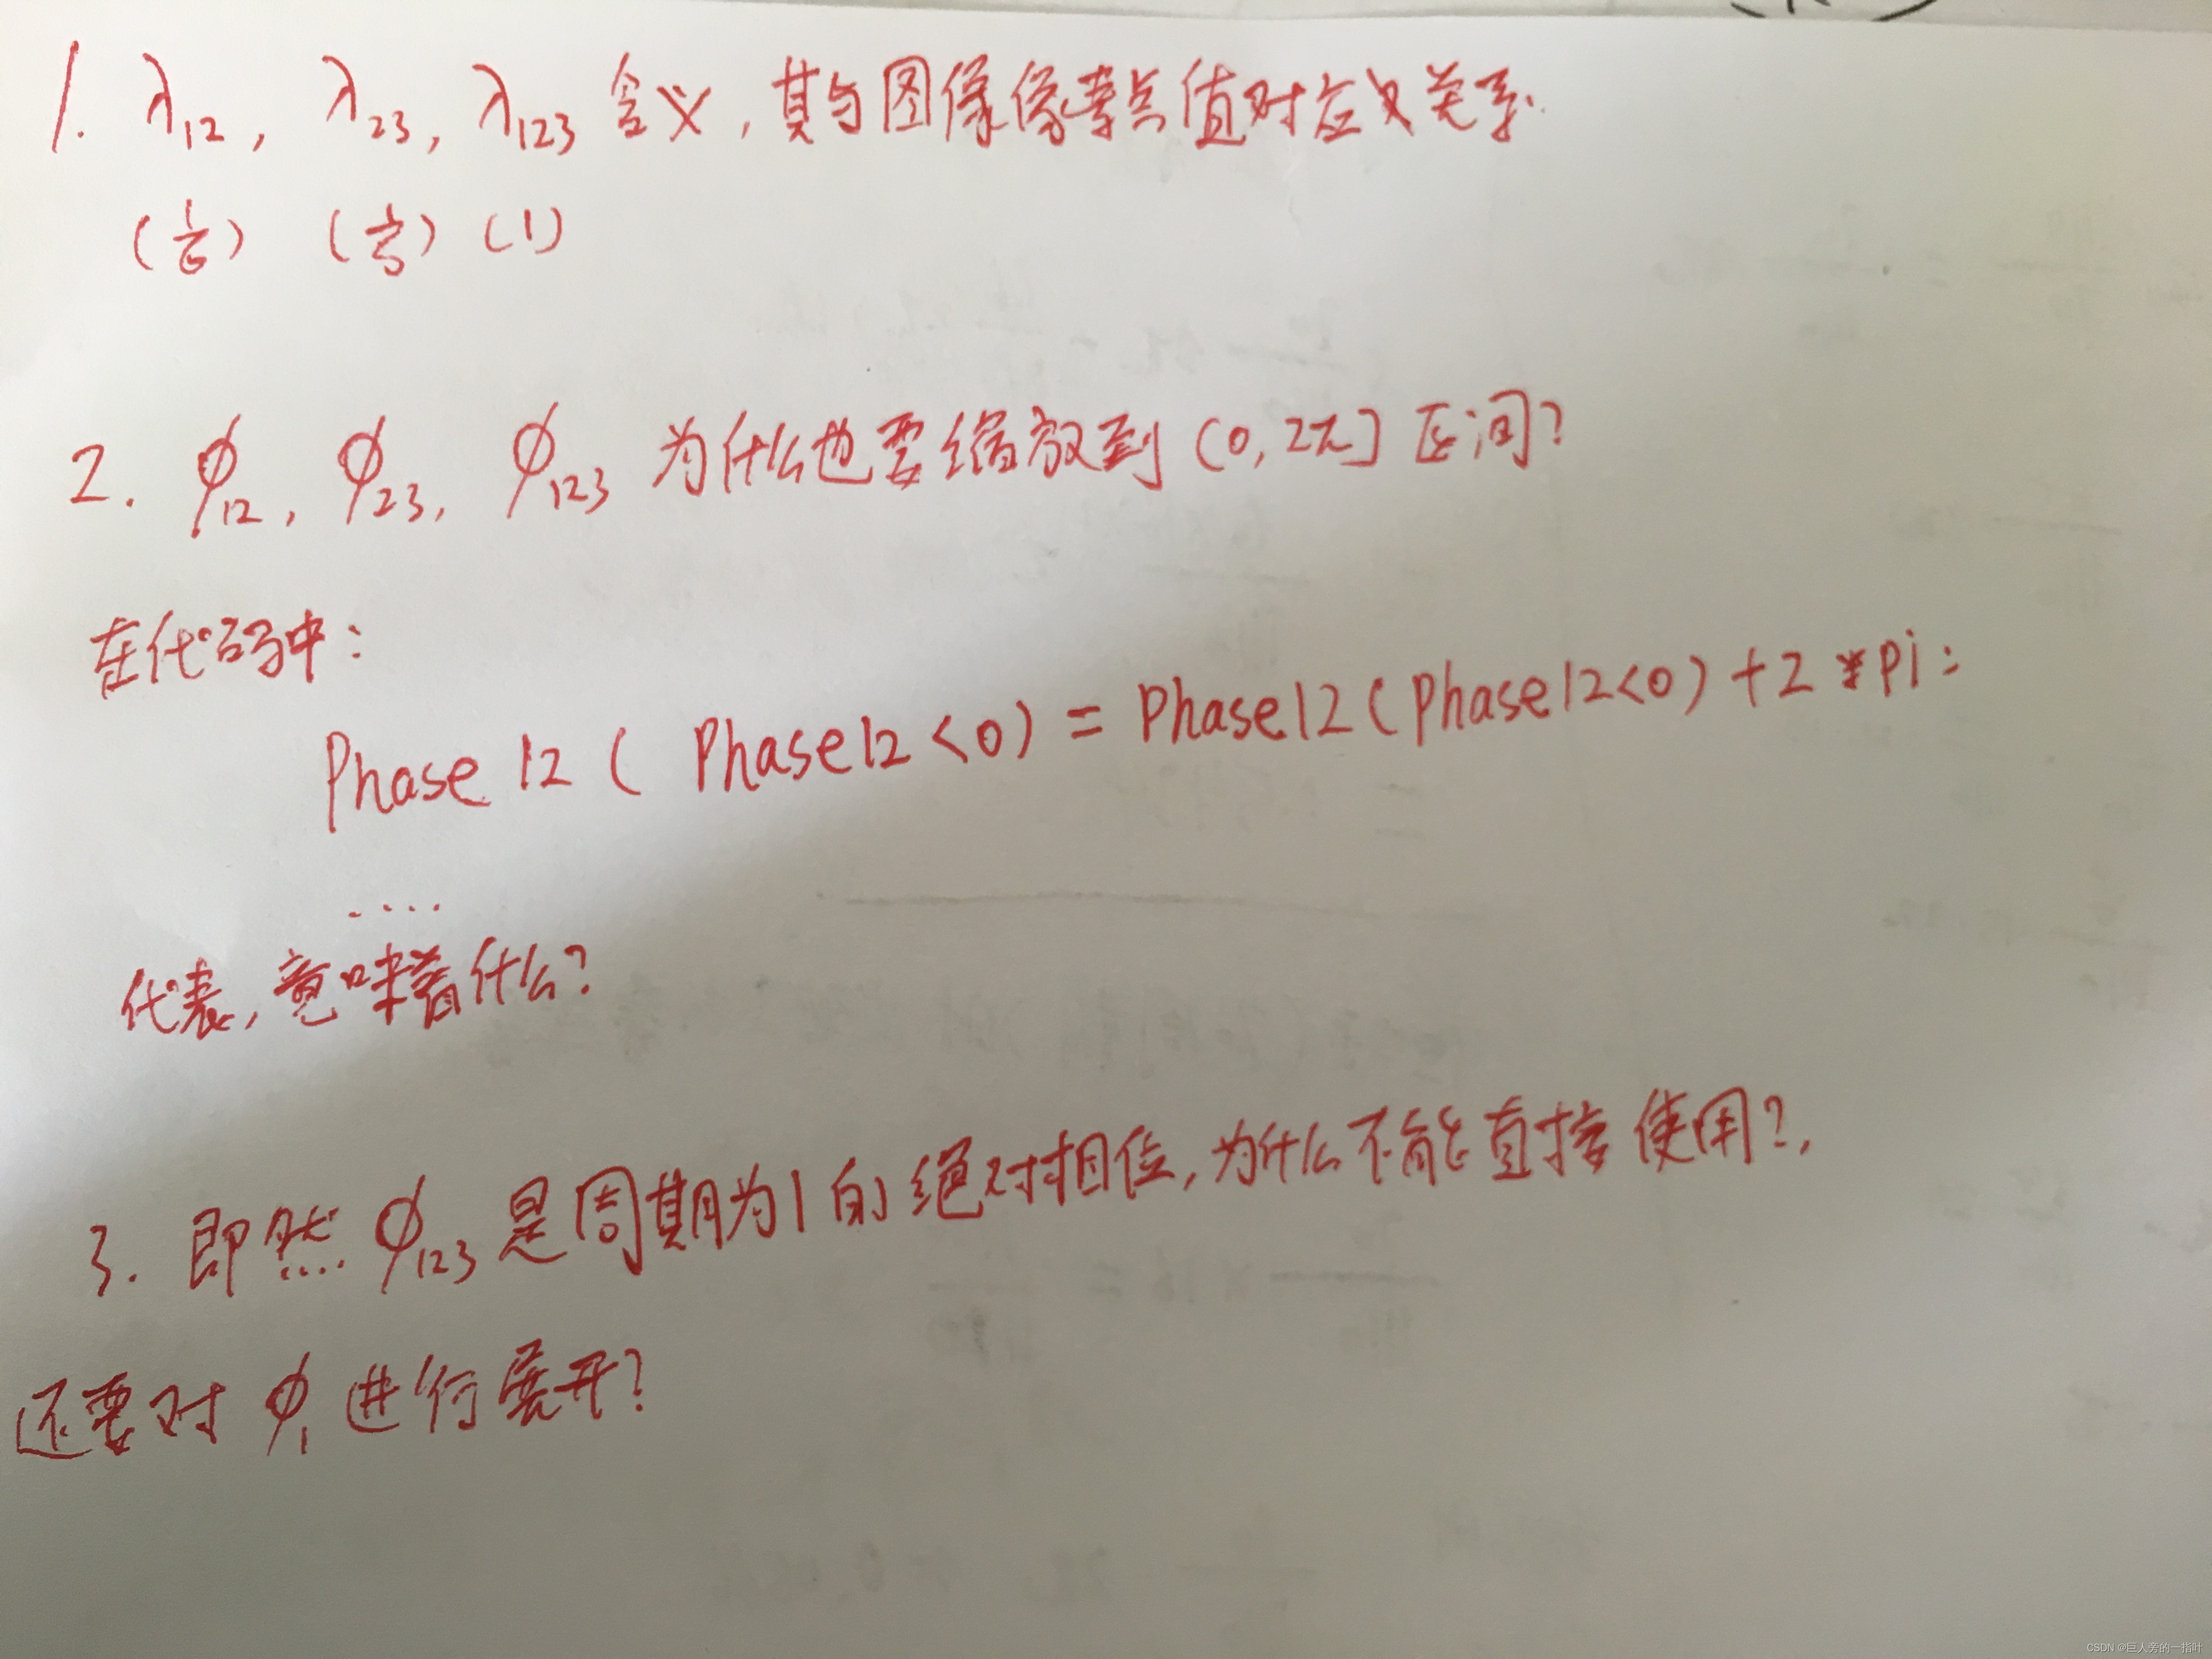 1. λ12, λ23, λ123 含义,其与图像像素点值对应关系.
(1/6) (1/5) (1)
2. φ12, φ23, φ123 为什么也要缩放到 (0, 2π] 区间?
在代码中:
Phase 12 ( Phase12 <0) = Phase12(Phase12<0) +2 *pi;
....
代表,意味着什么?
3. 即然.... φ123 是周期为1的绝对相位,为什么不能直接使用?,
还要对 φ1 进行展开?
CSDN @巨人旁的一指叶